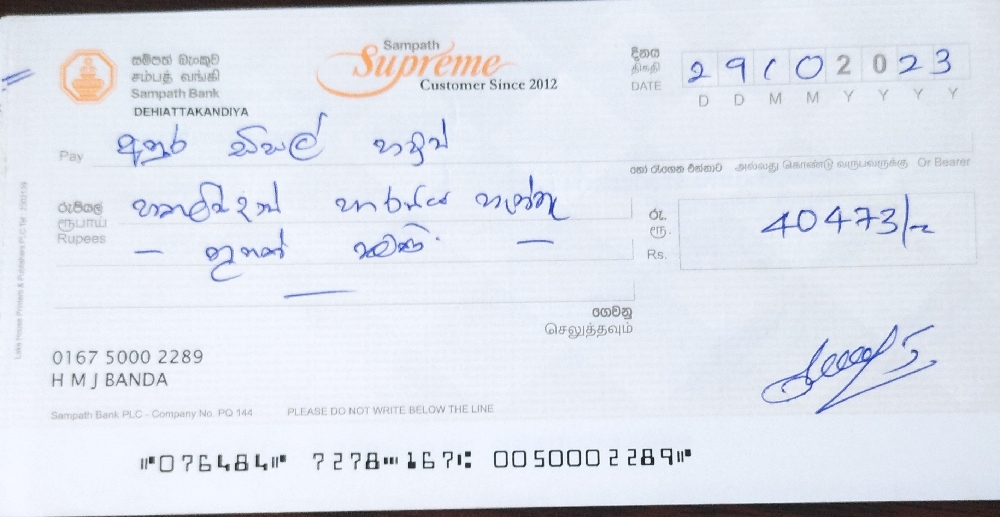 සම්පත් බැංකුව
சம்பத் வங்கி
Sampath Bank
DEHIATTAKANDIYA
Sampath
Supreme
Customer Since 2012
දිනය
திகதி
DATE
2 9 1 0 2 0 2 3
D D M M Y Y Y Y
Pay අනුර
හෝ රැගෙන එන්නාට அல்லது கொண்டு வருபவருக்கு Or Bearer
රුපියල්
ரூபாய்
Rupees
රු.
ரூ.
Rs.
40473/-
ගෙවනු
செலுத்தவும்
0167 5000 2289
H M J BANDA
Sampath Bank PLC - Company No. PQ 144 PLEASE DO NOT WRITE BELOW THE LINE
⑈076484⑈ 7278⑉167⑆ 0050002289⑈